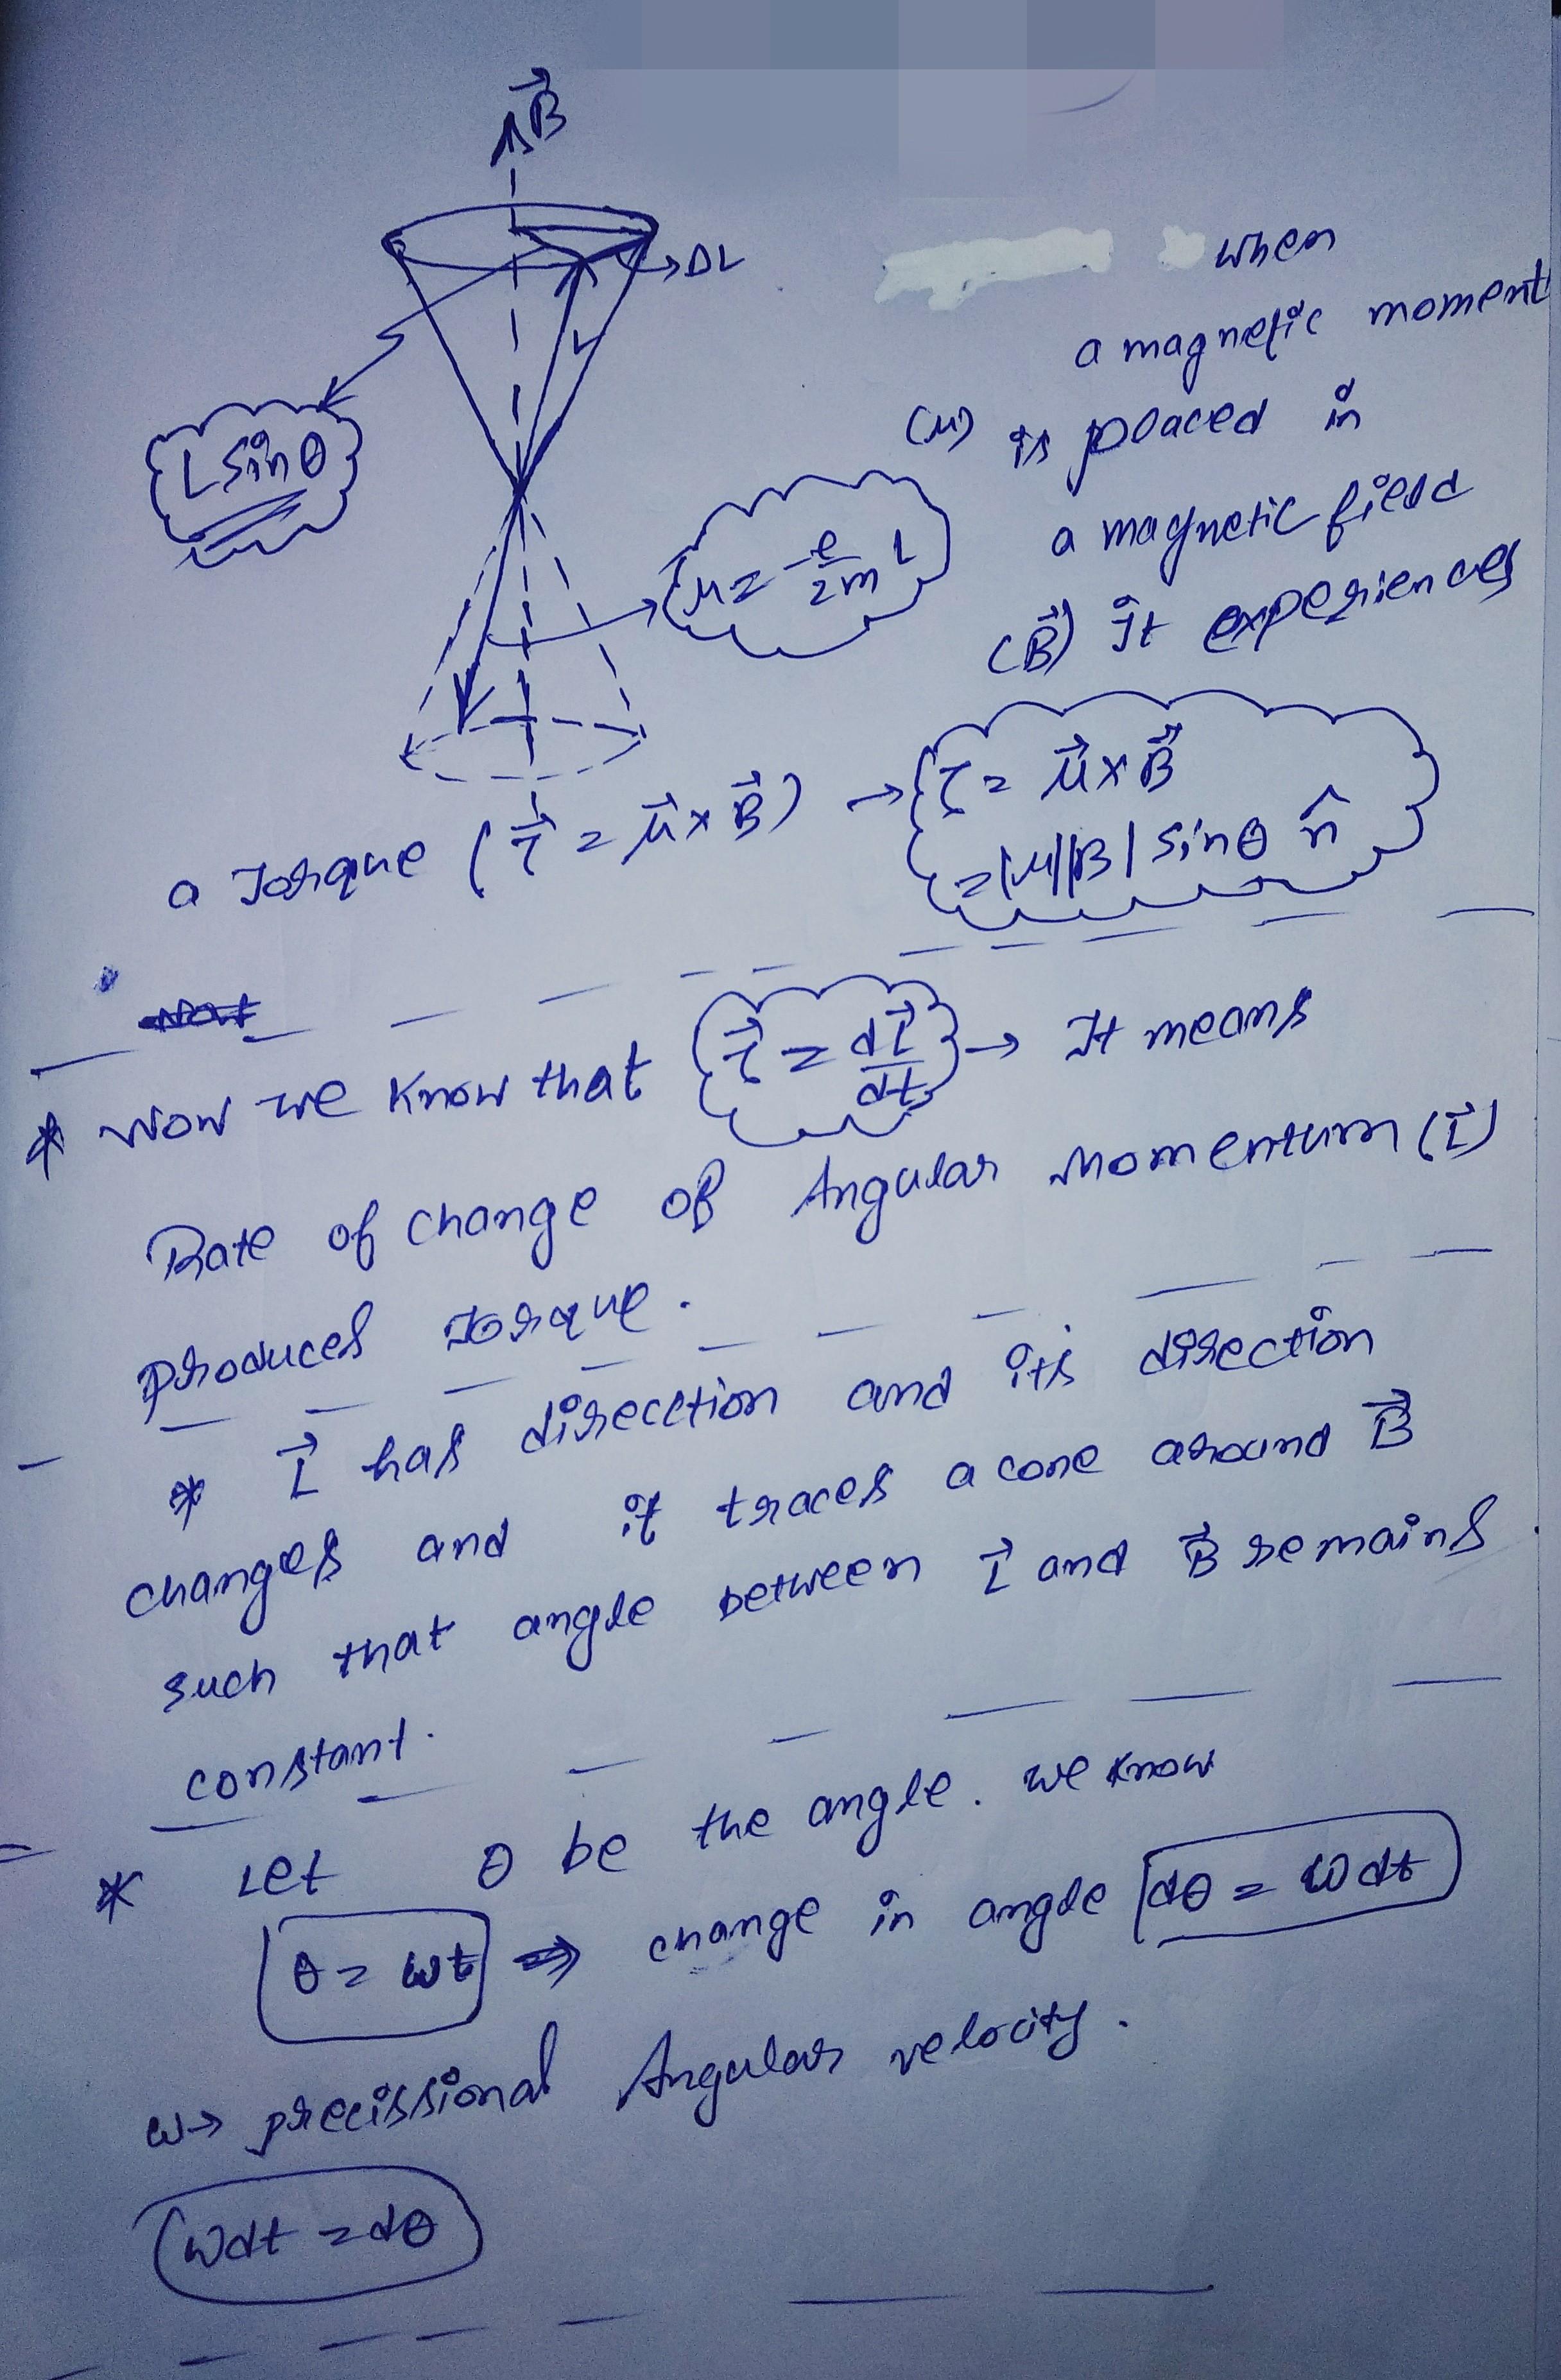 B⃗
ΔL
L
L sinθ
μ = -e/2m L
when
a magnetic moment
(μ) is placed in
a magnetic field
(B⃗) it experiences
a Torque (τ⃗ = μ⃗ × B⃗) → τ = μ⃗ × B⃗
= |μ||B| sinθ n̂
* Now we know that τ⃗ = dL⃗/dt → It means
Rate of change of Angular Momentum (L⃗)
produces Torque.
* L⃗ has direcction and its direction
changes and it traces a cone around B⃗
such that angle between L⃗ and B⃗ remains
constant.
* Let θ be the angle. we know
θ = ωt ⇒ change in angle dθ = ωdt
ω → precissional Angular velocity.
ωdt = dθ